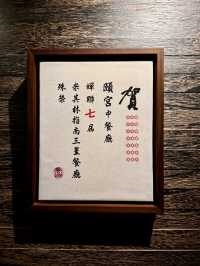 賀
頤宮中餐廳
蟬聯七屆
米其林指南三星餐廳
殊榮